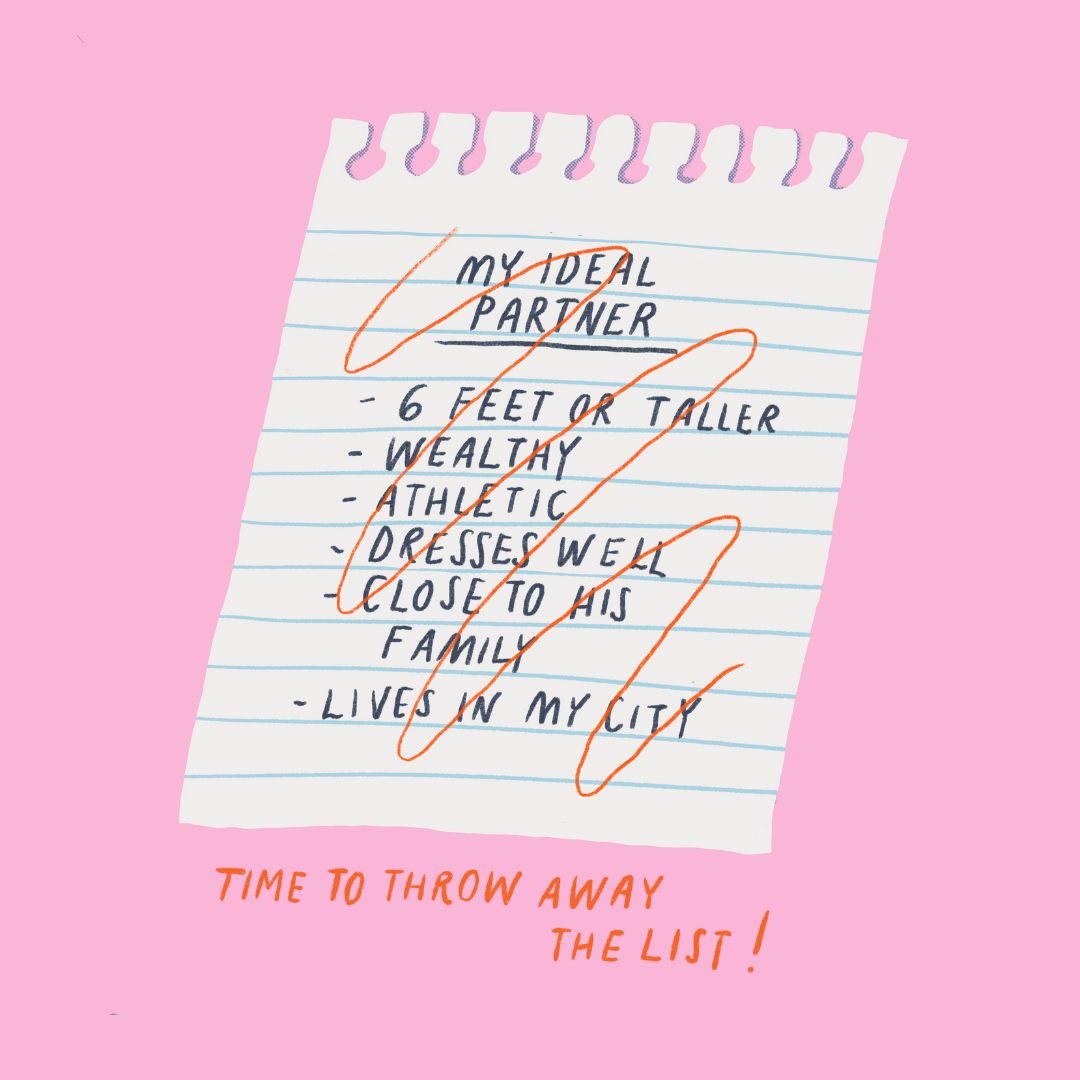 MY IDEAL
PARTNER
- 6 FEET OR TALLER
- WEALTHY
- ATHLETIC
- DRESSES WELL
- CLOSE TO HIS
FAMILY
- LIVES IN MY CITY
TIME TO THROW AWAY
THE LIST!